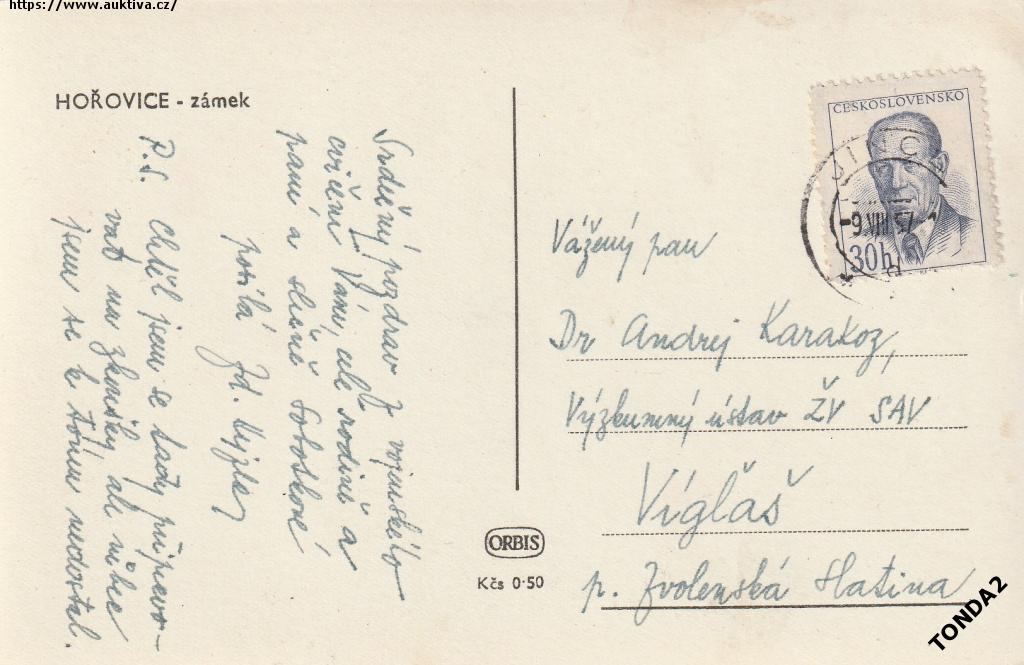 https://www.auktiva.cz/
HOŘOVICE - zámek
Srdečný pozdrav z vojenského
cvičení Vám, celé rodině a
paní a slečně Sobotkové
posílá Zd.
P.S. Chtěl jsem se tady připravo-
vat na zkoušky, ale vůbec
jsem se k tomu nedostal.
ORBIS
Kčs 0·50
ČESKOSLOVENSKO
30h
JINCE
-9.VIII.57
Vážený pan
Dr Andrej Karakoz,
Výzkumný ústav ŽV SAV
Vígľaš
p. Zvolenská Slatina
TONDA2